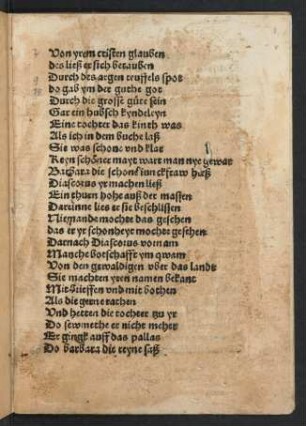 Von yrem cristen glauben
des ließ er sich betauben
Durch des argen teuffels spot
do gab ym der guthe got
Durch die grosse güte sein
Gar ein hubsch kyndeleyn
Eine tochter das kinth was
Als ich in dem buche laß
Sie was schone vnd klar
Keyn schöner mayt wart man nye gewar
Barbara die schone iunckfraw hieß
Diascorus yr machen ließ
Ein thurn hohe auß der massen
Darinne lies er sie beschlissen
Niemande mochte das geschen
das er yr schonheyt mochte geschen
Darnach Diascorus vornam
Manche botschafft ym qwam
Von den gewaldigen vber das landt
Sie machten yren namen bekant
Mit brieffen vnd mit bothen
Als die gerne rathen
Vnd hetten die tochter tzu yr
Do sewmethe er nicht meher
Er gingk auff das pallas
Do barbara die reyne saß